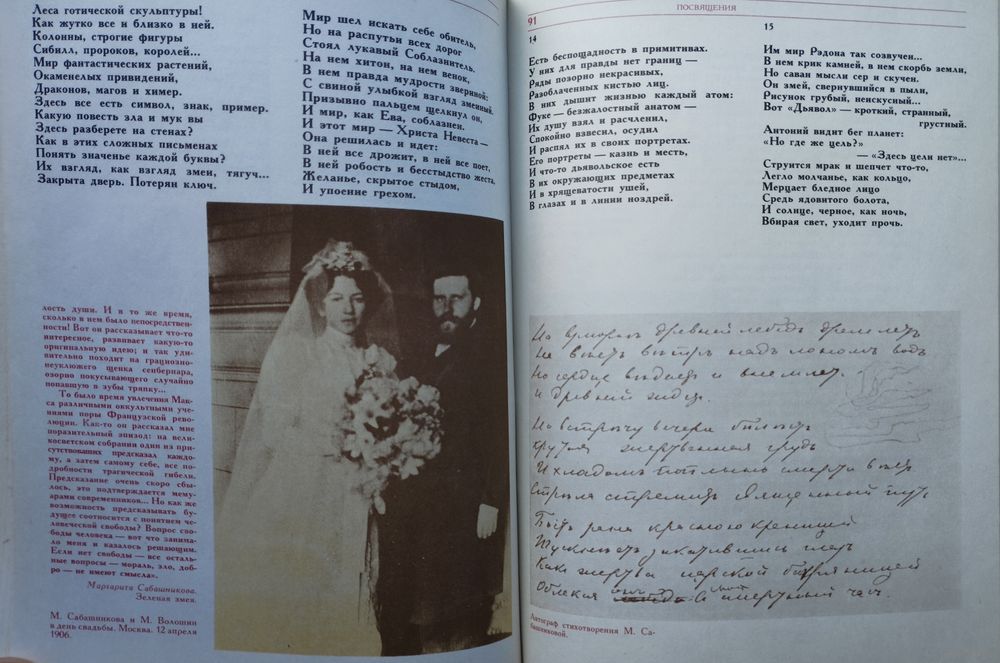 Леса готической скульптуры!
Как жутко все и близко в ней.
Колонны, строгие фигуры
Сибилл, пророков, королей...
Мир фантастических растений,
Окаменелых привидений,
Драконов, магов и химер.
Здесь все есть символ, знак, пример.
Какую повесть зла и мук вы
Здесь разберете на стенах?
Как в этих сложных письменах
Понять значенье каждой буквы?
Их взгляд, как взгляд змеи, тягуч...
Закрыта дверь. Потерян ключ.
Мир шел искать себе обитель,
Но на распутьи всех дорог
Стоял лукавый Соблазнитель.
На нем хитон, на нем венок,
В нем правда мудрости звериной:
С свиной улыбкой взгляд змеиный.
Призывно пальцем щелкнул он,
И мир, как Ева, соблазнен.
И этот мир — Христа Невеста —
Она решилась и идет:
В ней все дрожит, в ней все поет,
В ней робость и бесстыдство жеста,
Желанье, скрытое стыдом,
И упоение грехом.
лость души. И в то же время,
сколько в нем было непосредствен-
ности! Вот он рассказывает что-то
интересное, развивает какую-то
оригинальную идею; и так уди-
вительно походит на грациозно-
неуклюжего щенка сенбернара,
озорно покусывающего случайно
попавшую в зубы тряпку...
То было время увлечения Мак-
са различными оккультными уче-
ниями поры Французской рево-
люции. Как-то он рассказал мне
поразительный эпизод: на вели-
косветском собрании один из при-
сутствовавших предсказал каждо-
му, а затем самому себе, все по-
дробности трагической гибели.
Предсказание очень скоро сбы-
лось, это подтверждается мему-
арами современников... Но как же
возможность предсказывать бу-
дущее соотносится с понятием че-
ловеческой свободы? Вопрос сво-
боды человека — вот что занима-
ло меня и казалось решающим.
Если нет свободы — все осталь-
ные вопросы — мораль, зло, доб-
ро — не имеют смысла».
Маргарита Сабашникова.
Зеленая змея.
М. Сабашникова и М. Волошин
в день свадьбы. Москва. 12 апреля
1906.
91
ПОСВЯЩЕНИЯ
14
Есть беспощадность в примитивах.
У них для правды нет границ —
Ряды позорно некрасивых,
Разоблаченных кистью лиц.
В них дышит жизнью каждый атом:
Фуке — безжалостный анатом —
Их душу взял и расчленил,
Спокойно взвесил, осудил
И распял их в своих портретах.
Его портреты — казнь и месть,
И что-то дьявольское есть
В их окружающих предметах
И в хрящеватости ушей,
В глазах и в линии ноздрей.
15
Им мир Рэдона так созвучен...
В нем крик камней, в нем скорбь земли,
Но саван мысли сер и скучен.
Он змей, свернувшийся в пыли,
Рисунок грубый, неискусный...
Вот «Дьявол» — кроткий, странный,
грустный.
Антоний видит бег планет:
«Но где же цель?»
— «Здесь цели нет»...
Струится мрак и шепчет что-то,
Легло молчанье, как кольцо,
Мерцает бледное лицо
Средь ядовитого болота,
И солнце, черное, как ночь,
Вбирая свет, уходит прочь.
древней лебедь
над лоном водъ
Но сердце и внемлетъ
И древний
На встречу вечера
грудь
И хладомъ смерти
Стрела стремитъ путь
Быть
закатившись
Какъ жертва царской багряницей
смертный часъ.
Автограф стихотворения М. Са-
башниковой.